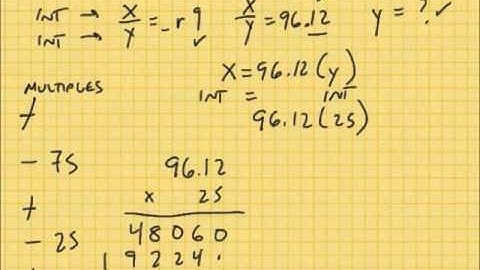 INT → X/Y = _ r 9 ✓
INT →
X/Y = 96.12
y = ? ✓
X = 96.12 (y)
INT = INT
96.12 (25)
MULTIPLES
- 75
- 25
96.12
x 25
48060
19224.